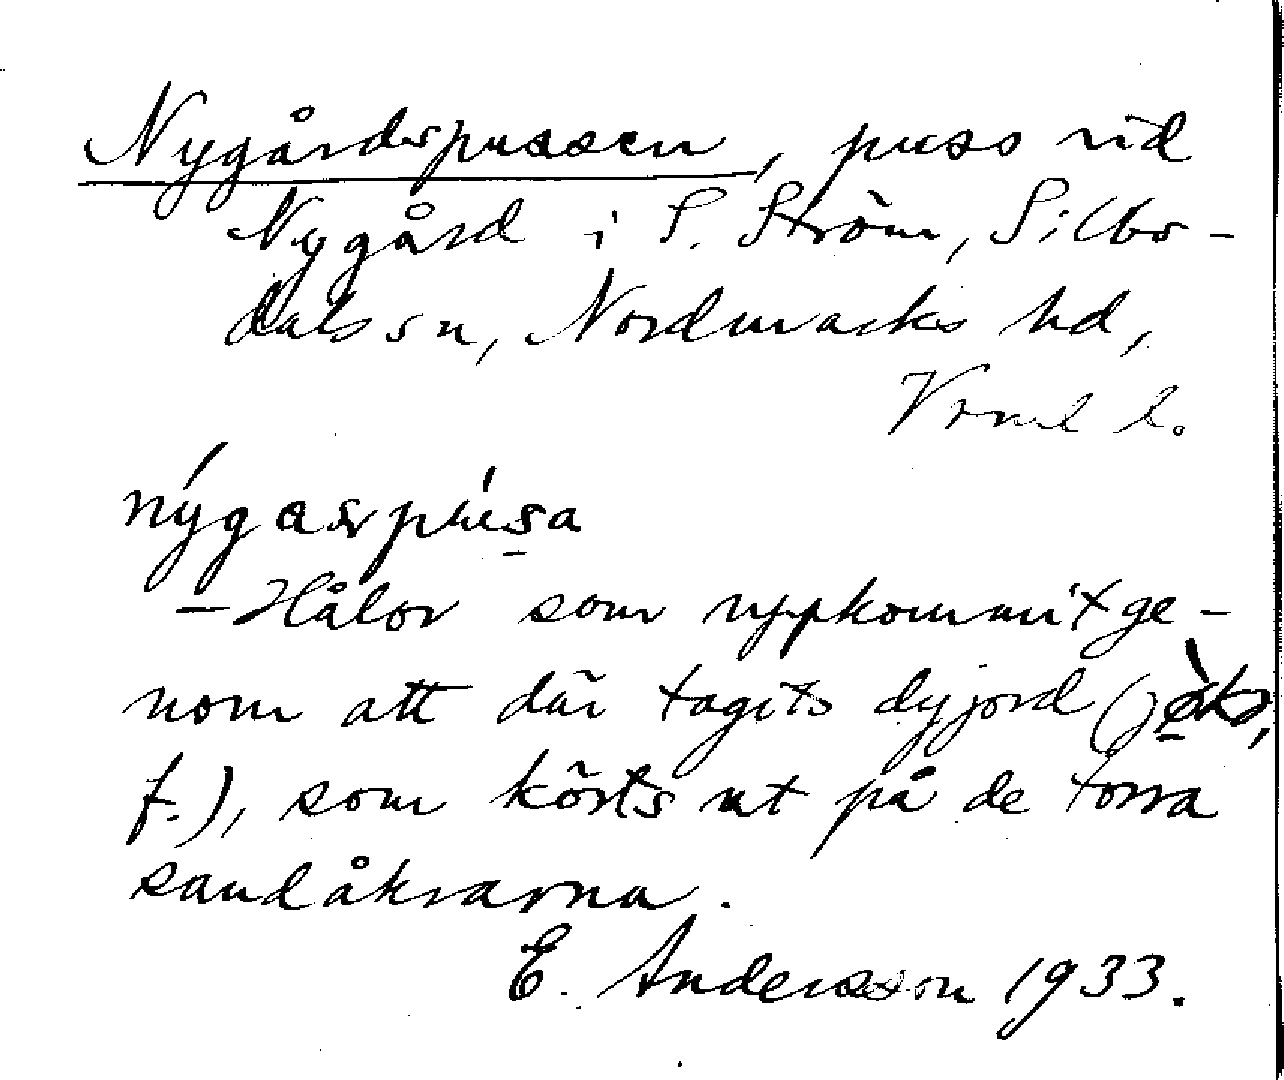 Nygårdspussen, puss vid
Nygård i S. Ström, Silbo-
dals sn, Nordmarks hd,
Vrml l.
nýgaspúsa
– Hålor som uppkommit ge-
nom att där tagits dyjord (
f.), som körts ut på de torra
sandåkrarna.
E. Andersson 1933.